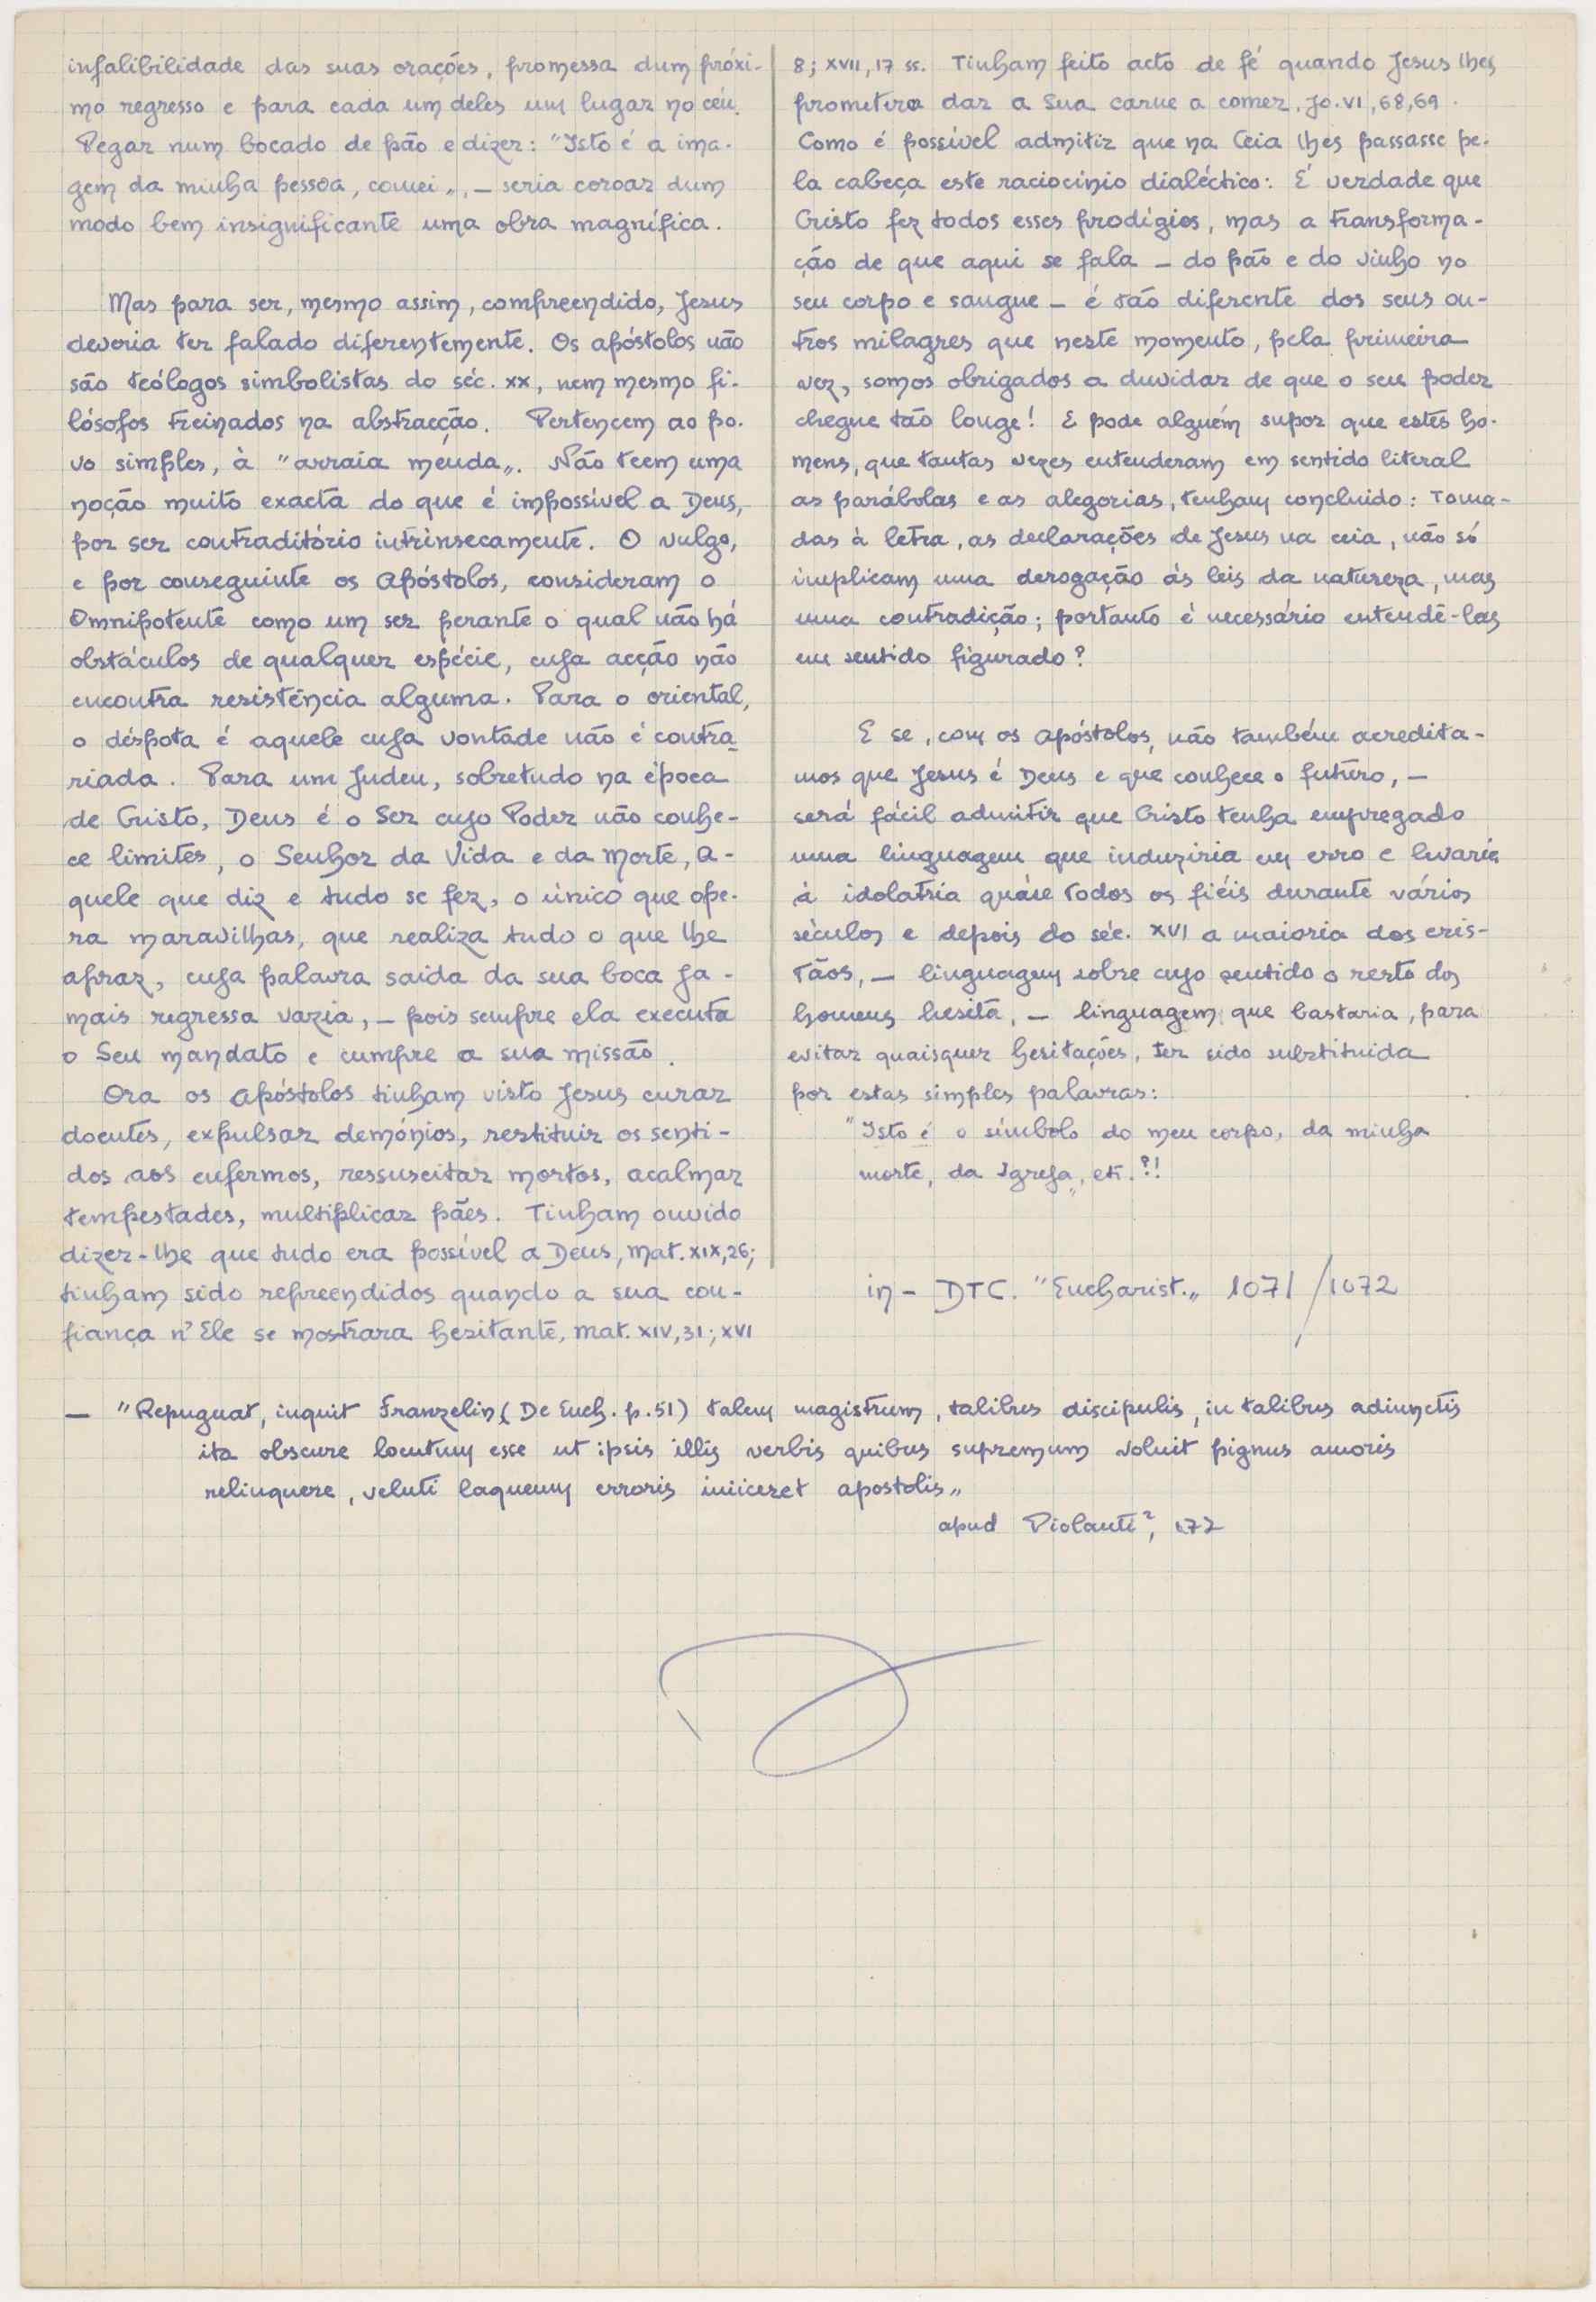 infalibilidade das suas orações, promessa dum próxi-
mo regresso e para cada um deles um lugar no céu.
Pegar num bocado de pão e dizer: "Isto é a ima-
gem da minha pessoa, comei", – seria coroar dum
modo bem insignificante uma obra magnífica.
Mas para ser, mesmo assim, compreendido, Jesus
deveria ter falado diferentemente. Os apóstolos não
são teólogos simbolistas do séc. XX, nem mesmo fi-
lósofos treinados na abstracção. Pertencem ao po-
vo simples, à "arraia meuda". Não teem uma
noção muito exacta do que é impossível a Deus,
por ser contraditório intrinsecamente. O vulgo,
e por conseguinte os Apóstolos, consideram o
Omnipotente como um ser perante o qual não há
obstáculos de qualquer espécie, cuja acção não
encontra resistência alguma. Para o oriental,
o déspota é aquele cuja vontade não é contra-
riada. Para um Judeu, sobretudo na época
de Cristo, Deus é o Ser cujo Poder não conhe-
ce limites, o Senhor da Vida e da Morte, A-
quele que diz e tudo se fez, o único que ope-
ra maravilhas, que realiza tudo o que lhe
apraz, cuja palavra saida da sua boca ja-
mais regressa vazia, – pois sempre ela executa
o Seu mandato e cumpre a sua missão.
Ora os Apóstolos tinham visto Jesus curar
doentes, expulsar demónios, restituir os senti-
dos aos enfermos, ressuscitar mortos, acalmar
tempestades, multiplicar pães. Tinham ouvido
dizer-lhe que tudo era possível a Deus, Mat. XIX,26;
tinham sido repreendidos quando a sua con-
fiança n'Ele se mostrara hesitante, Mat. XIV,31; XVI
8; XVII, 17 ss. Tinham feito acto de fé quando Jesus lhes
prometera dar a Sua carne a comer. Jo. VI, 68,69.
Como é possível admitir que na Ceia lhes passasse pe-
la cabeça este raciocínio dialéctico: É verdade que
Cristo fez todos esses prodígios, mas a transforma-
ção de que aqui se fala – do pão e do vinho no
seu corpo e sangue – é tão diferente dos seus ou-
tros milagres que neste momento, pela primeira
vez, somos obrigados a duvidar de que o seu poder
chegue tão longe! E pode alguém supor que estes ho-
mens, que tantas vezes entenderam em sentido literal
as parábolas e as alegorias, tenham concluido: Toma-
das à letra, as declarações de Jesus na ceia, não só
implicam uma derogação às leis da natureza, mas
uma contradição; portanto é necessário entendê-las
em sentido figurado?
E se, com os apóstolos, não também acredita-
mos que Jesus é Deus e que conhece o futuro, –
será fácil admitir que Cristo tenha empregado
uma linguagem que induziria em erro e levaria
à idolatria quási todos os fiéis durante vários
séculos e depois do séc. XVI a maioria dos cris-
tãos, – linguagem sobre cujo sentido o resto dos
homens hesita, – linguagem que bastaria, para
evitar quaisquer hesitações, ter sido substituida
por estas simples palavras:
"Isto é o símbolo do meu corpo, da minha
morte, da Igreja", etc. ?!
in – DTC. "Eucharist." 1071/1072
– "Repugnat, inquit Franzelin (De Euch. p.51) talem magistrum, talibus discipulis, in talibus adiunctis
ita obscure locutum esse ut ipsis illis verbis quibus supremum voluit pignus amoris
relinquere, veluti laqueum erroris iniiceret apostolis"
apud Piolanti²,